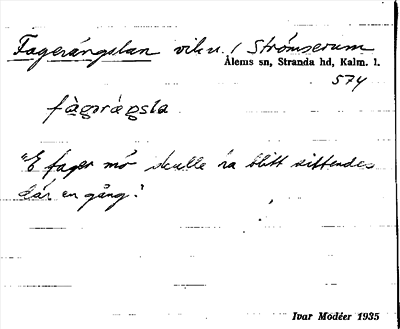 Fagerängslan vik u. / Strömserum
Ålems sn, Stranda hd, Kalm. l.
574
fàgərángsla
"E fager mö skulle ha blitt sittendes
där en gång."
Ivar Modéer 1935